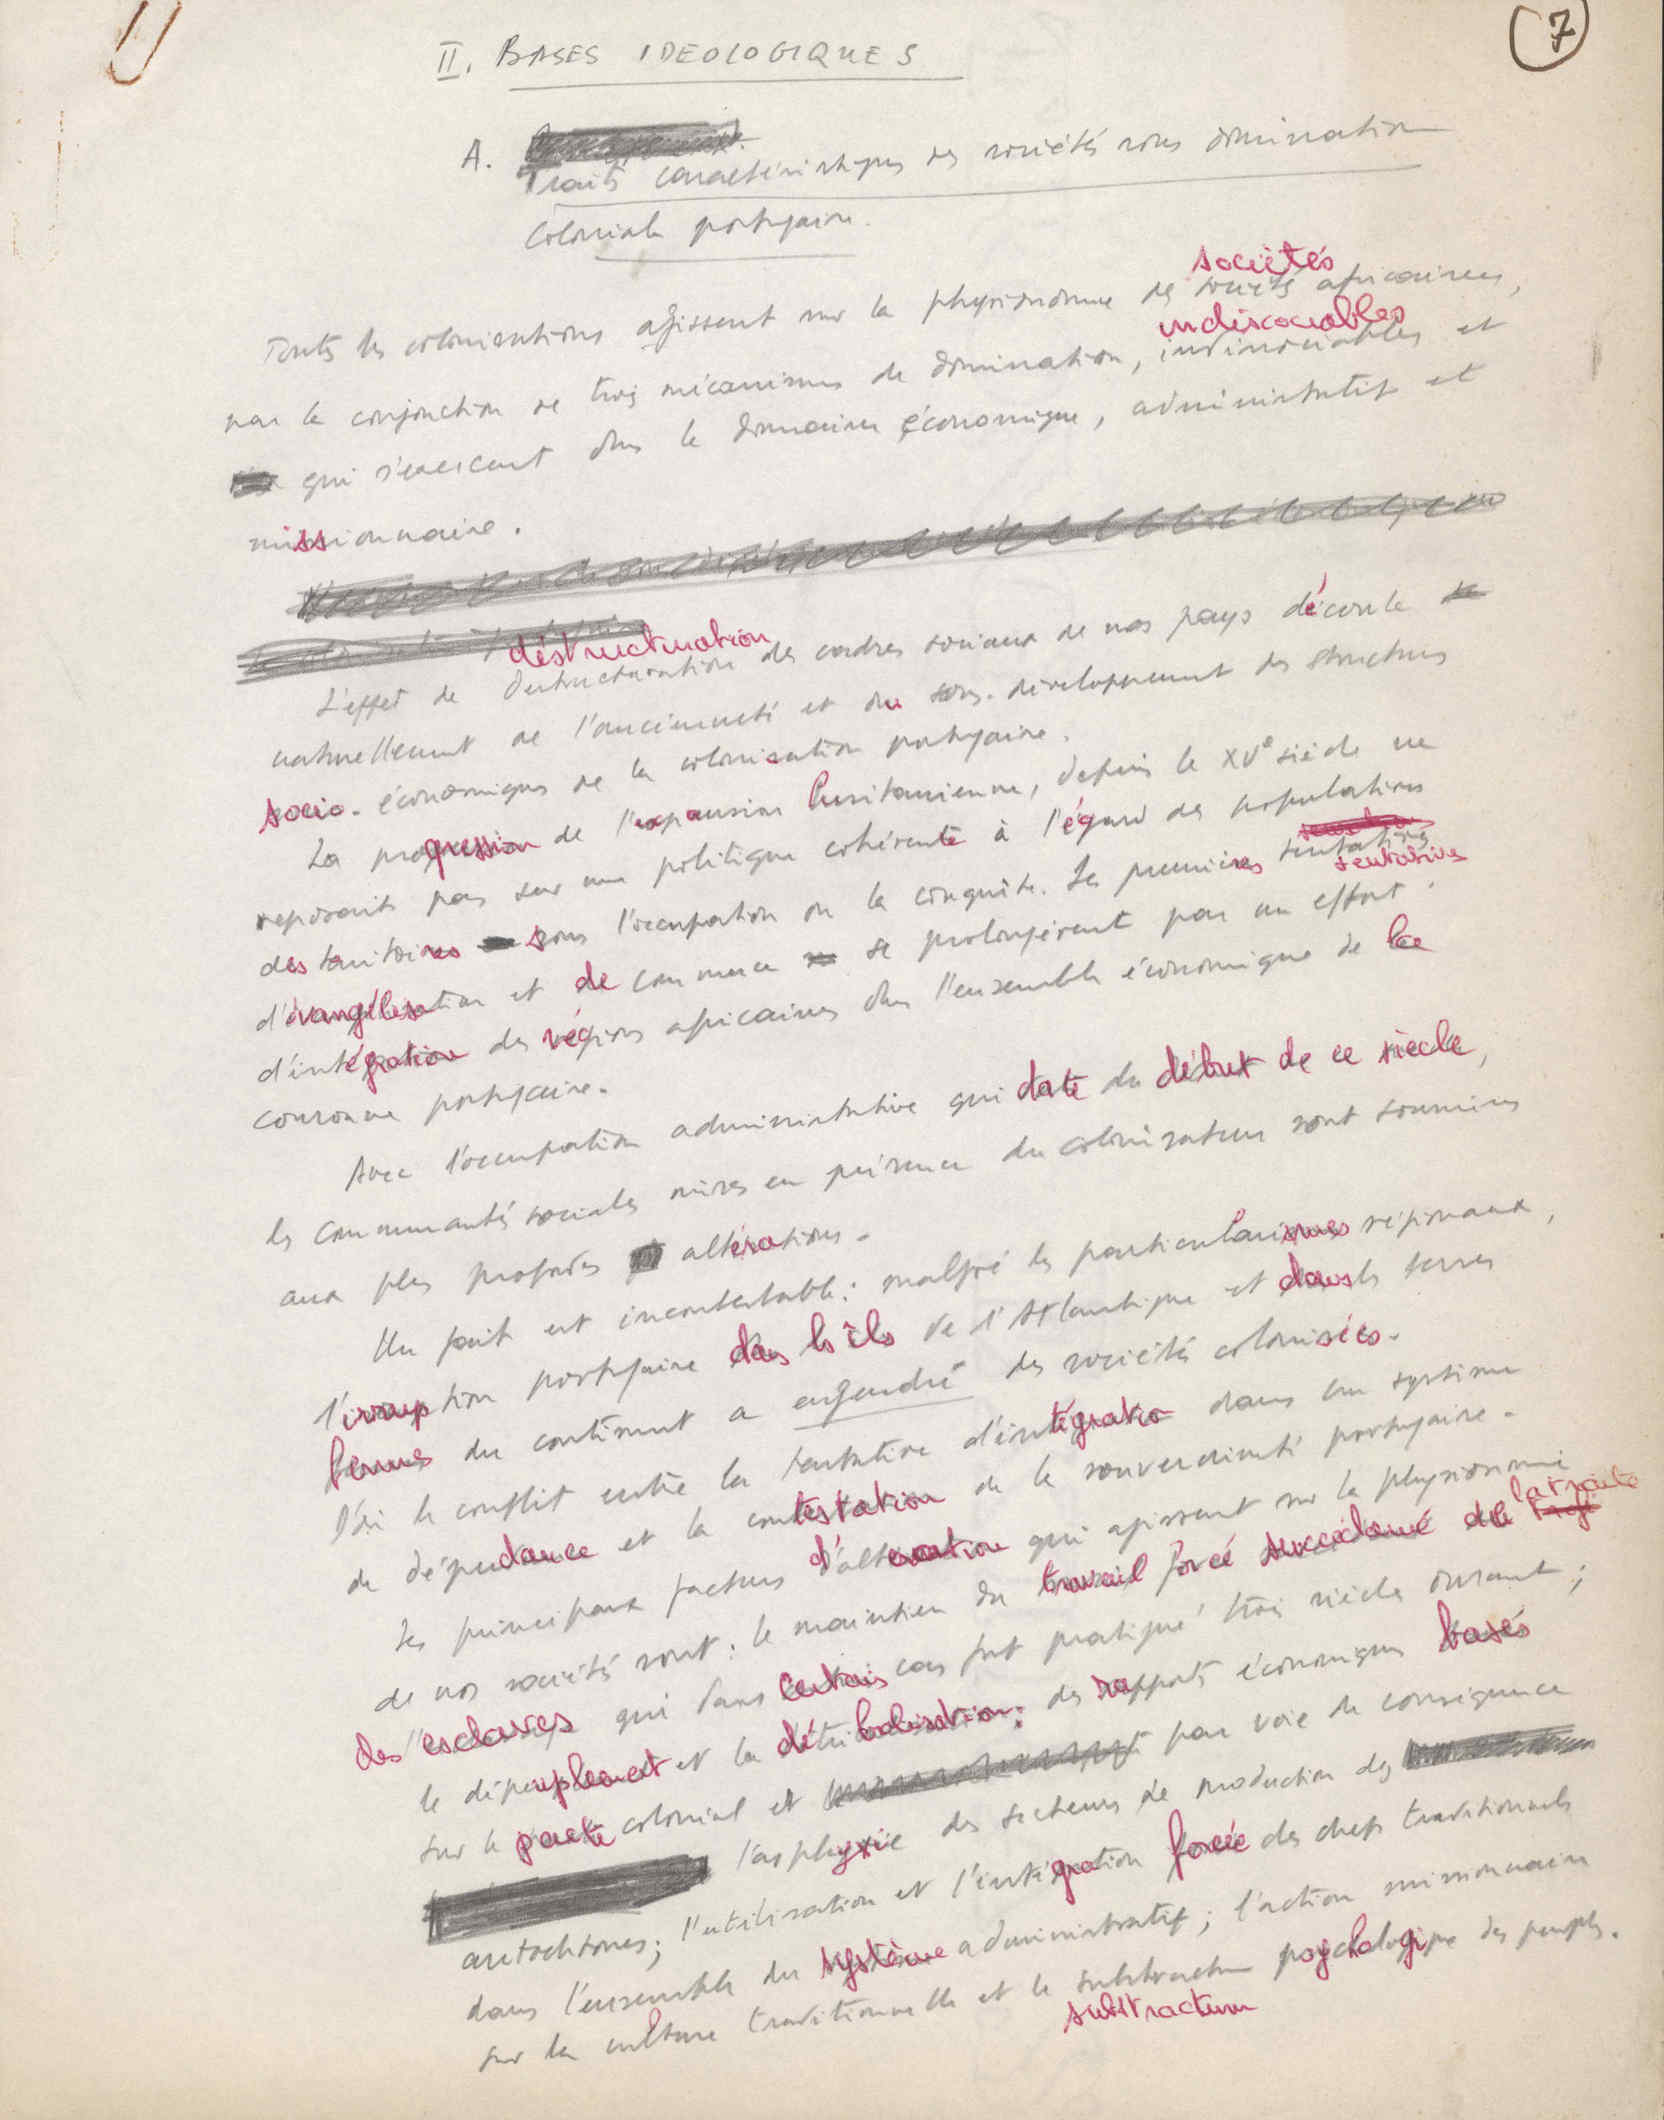 7
II. BASES IDEOLOGIQUES
A.
Traits caractéristiques des sociétés sous domination
coloniale portugaise.
sociétés
Toutes les colonisations agissent sur la physionomie des sociétés africaines,
indissociables
par la conjonction de trois mécanismes de domination, indissociables et
qui s'exercent dans le domaine économique, administratif et
missionnaire.
déstructuration
L'effet de destructuration des cadres sociaux de nos pays découle
naturellement de l'ancienneté et du sous-développement des structures
socio-économiques de la colonisation portugaise.
La progression de l'expansion lusitanienne, depuis le XVe siècle ne
reposait pas sur une politique cohérente à l'égard des populations
des territoires sous l'occupation ou la conquête. Les premières tentatives
tentatives
d'évangélisation et de commerce se prolongèrent par un effort
d'intégration des régions africaines dans l'ensemble économique de la
couronne portugaise.
Avec l'occupation administrative qui date du début de ce siècle,
les communautés sociales mises en présence du colonisateur sont soumises
aux plus profondes altérations.
Un fait est incontestable : malgré les particularismes régionaux,
l'irruption portugaise dans les îles de l'Atlantique et dans les terres
fermes du continent a engendré des sociétés colonisées.
D'où le conflit entre la tentative d'intégration dans un système
de dépendance et la contestation de la souveraineté portugaise.
Les principaux facteurs d'altération qui agissent sur la physionomie
la traite
de nos sociétés sont : le maintien du travail forcé succédané de
des esclaves qui dans certains cas fut pratiqué trois siècles durant ;
le dépeuplement et la détribalisation ; des rapports économiques basés
sur le pacte colonial et par voie de conséquence
l'asphyxie des secteurs de production des
autochtones ; l'utilisation et l'intégration forcée des chefs traditionnels
dans l'ensemble du système administratif ; l'action missionnaire
sur la culture traditionnelle et le substractum psychologique des peuples.
substractum